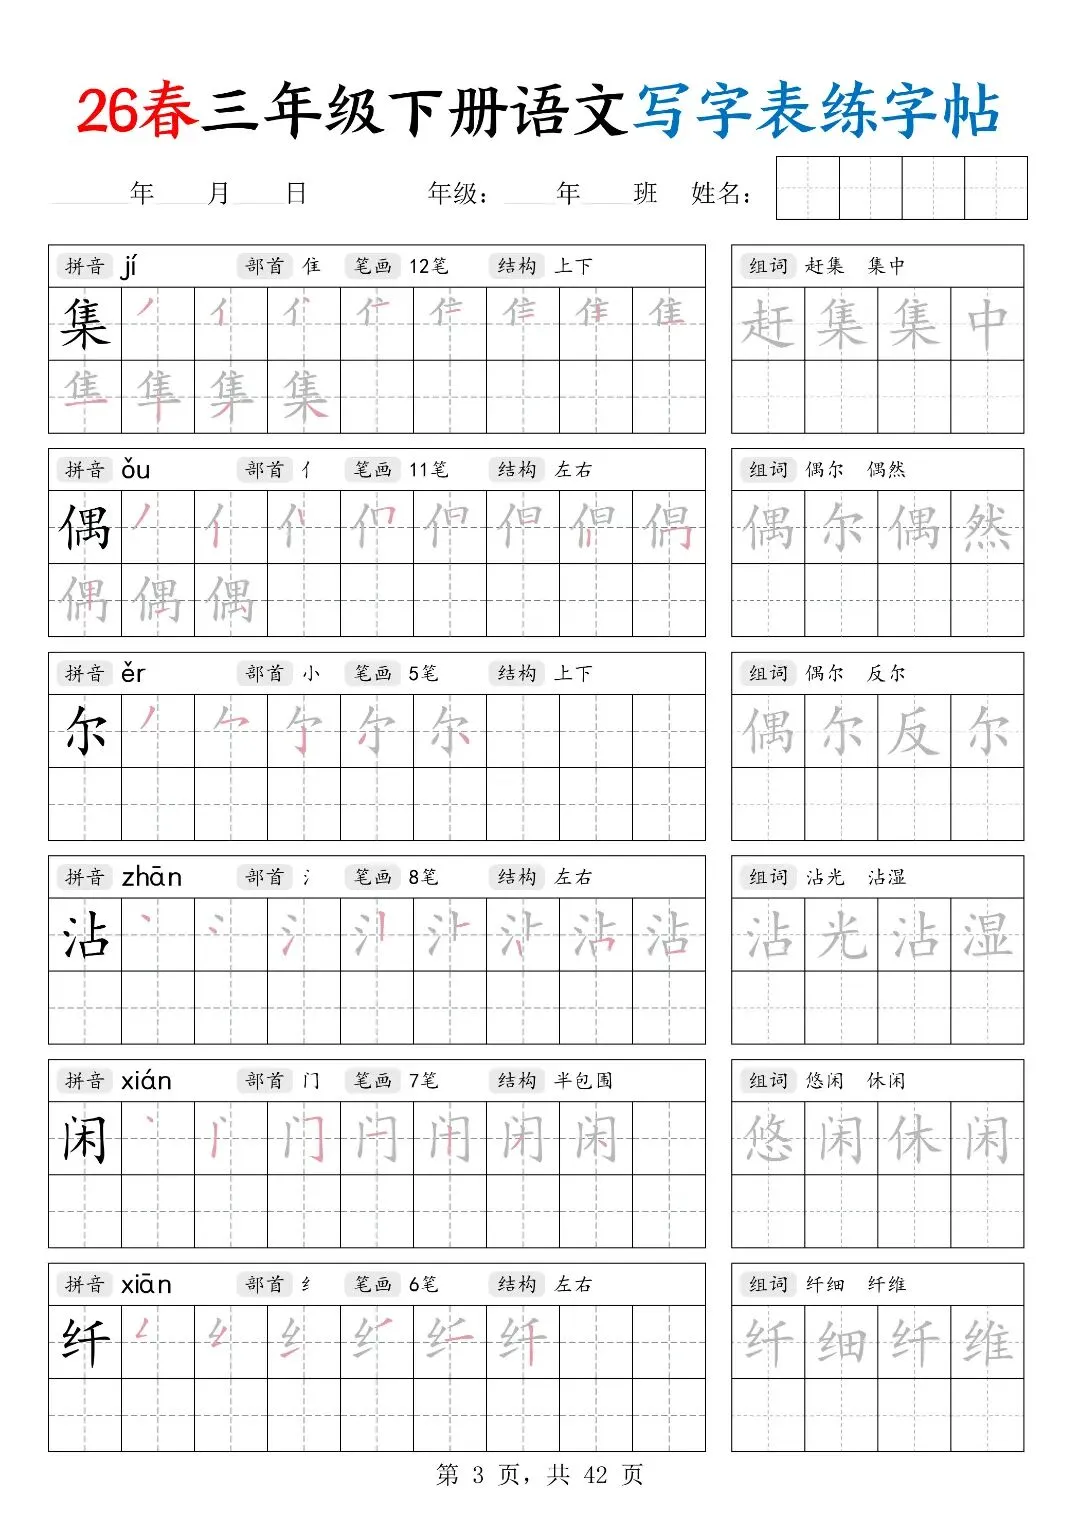 26春三年级下册语文写字表练字帖
年 月 日 年级： 年 班 姓名：
拼音 jí 部首 隹 笔画 12笔 结构 上下 组词 赶集 集中
集 丿 亻 隹 赶 集 集 中
隼 集
拼音 ǒu 部首 亻 笔画 11笔 结构 左右 组词 偶尔 偶然
偶 丿 亻 偶 尔 偶 然
偶 偶 偶
拼音 ěr 部首 小 笔画 5笔 结构 上下 组词 偶尔 反尔
尔 丿 尔 偶 尔 反 尔
拼音 zhān 部首 氵 笔画 8笔 结构 左右 组词 沾光 沾湿
沾 丶 冫 氵 沾 沾 光 沾 湿
拼音 xián 部首 门 笔画 7笔 结构 半包围 组词 悠闲 休闲
闲 丶 门 闩 闲 悠 闲 休 闲
拼音 xiān 部首 纟 笔画 6笔 结构 左右 组词 纤细 纤维
纤 纟 纤 纤 细 纤 维
第 3 页，共 42 页